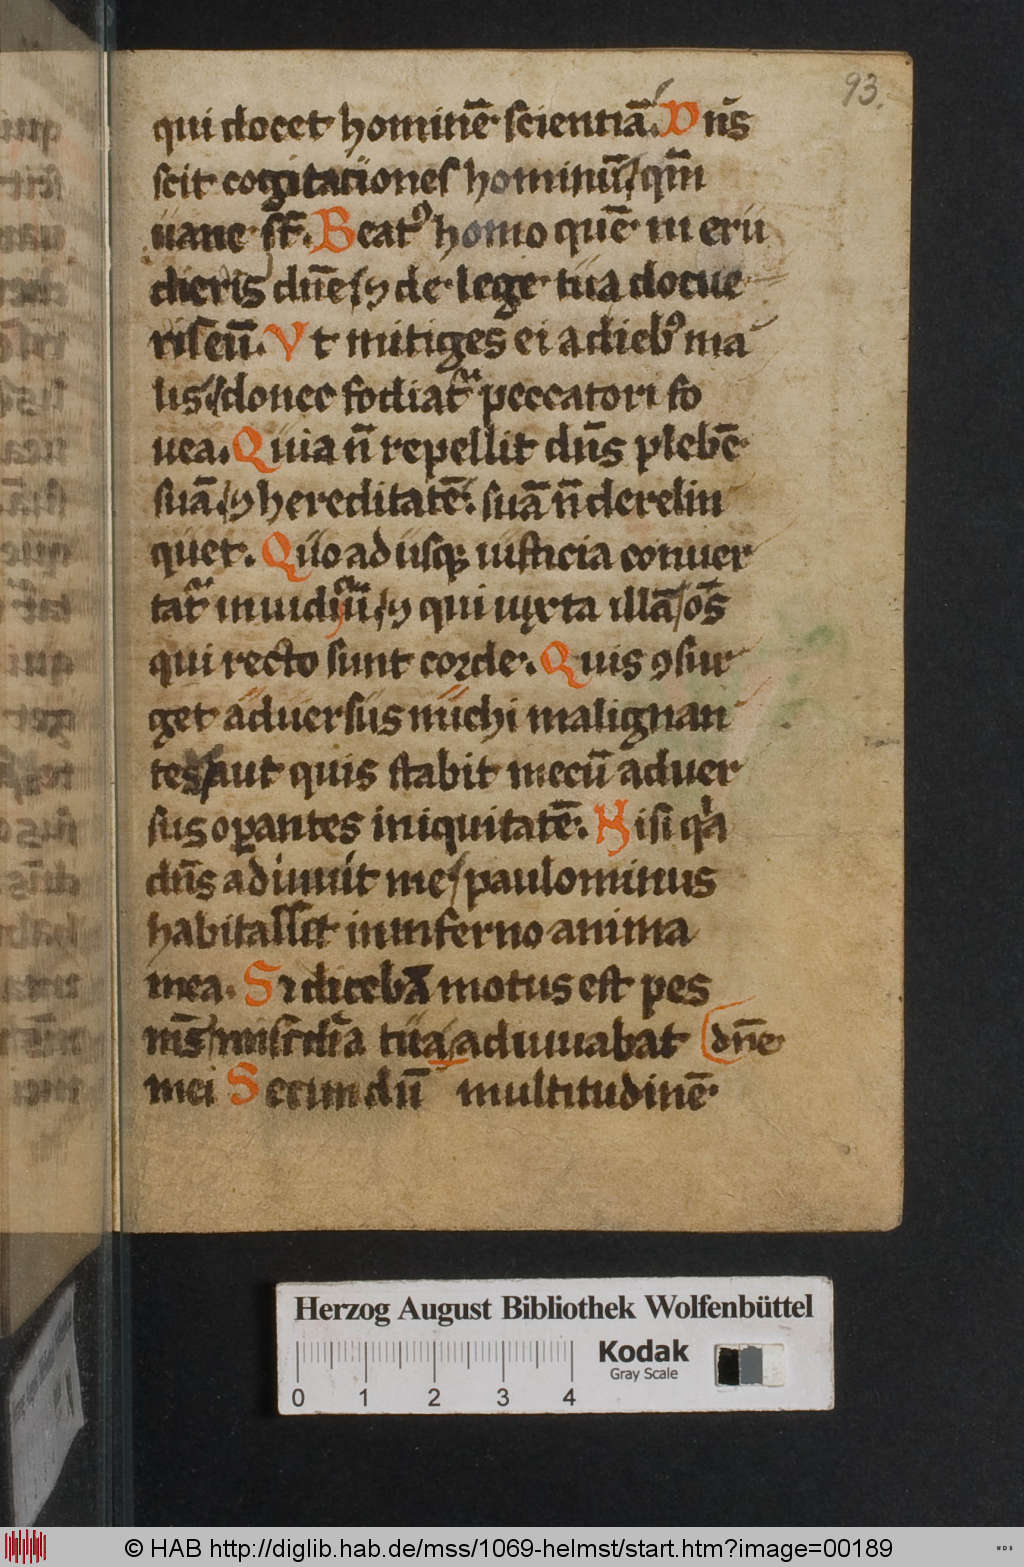 93.
qui docet hominē scientiā. Dn̄s
scit cogitationes hominū/ qm̄
uane st̄. Beat⁹ homo quē tu eru
dieris dn̄e/ ⁊ de lege tua docue
ris eū. Vt mitiges ei a dieb⁹ ma
lis/ donec fodiat᷑ peccatori fo
uea. Quia n̄ repellit dn̄s plebē
suā/ ⁊ hereditatē suā n̄ derelin
quet. Quo ad usq; iusticia conuer
tat᷑ in iudiciū/ ⁊ qui iuxta illā/ om̄s
qui recto sunt corde. Quis ꝯsur
get aduersus michi malignan
tes/ aut quis stabit mecū aduer
sus oꝑantes iniquitatē. Nisi qͥa
dn̄s adiuuit me/ paulominus
habitasset in inferno anima
mea. Si dicebā motus est pes
ms̄/ mis̄cdia tua adiuuabat dn̄e
mei Secundū multitudinē
Herzog August Bibliothek Wolfenbüttel
Kodak
Gray Scale
0 1 2 3 4
© HAB http://diglib.hab.de/mss/1069-helmst/start.htm?image=00189